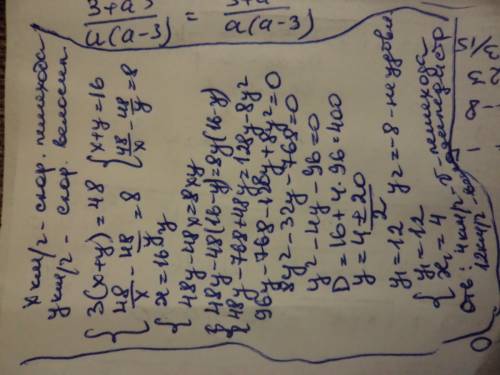 3+a
a(a-3) = 3+a
a(a-3)
x км/г - скор. пешехода
y км/г - скор. велосип
{ 3(x+y) = 48 { x+y=16
48/x - 48/y = 8 { 48/x - 48/y = 8
{ x = 16-y
48y-48x=8xy
{ 48y-48(16-y)=8y(16-y)
{ 48y-768+48y=128y-8y²
96y-768-128y+8y²=0
8y²-32y-768=0
y²-4y-96=0
D=16+4·96=400
y = 4±20/2
y₁=12 y₂=-8 - не удовл
{ y₁=12
x₁=4
Отв: 4км/г-
12км/г-